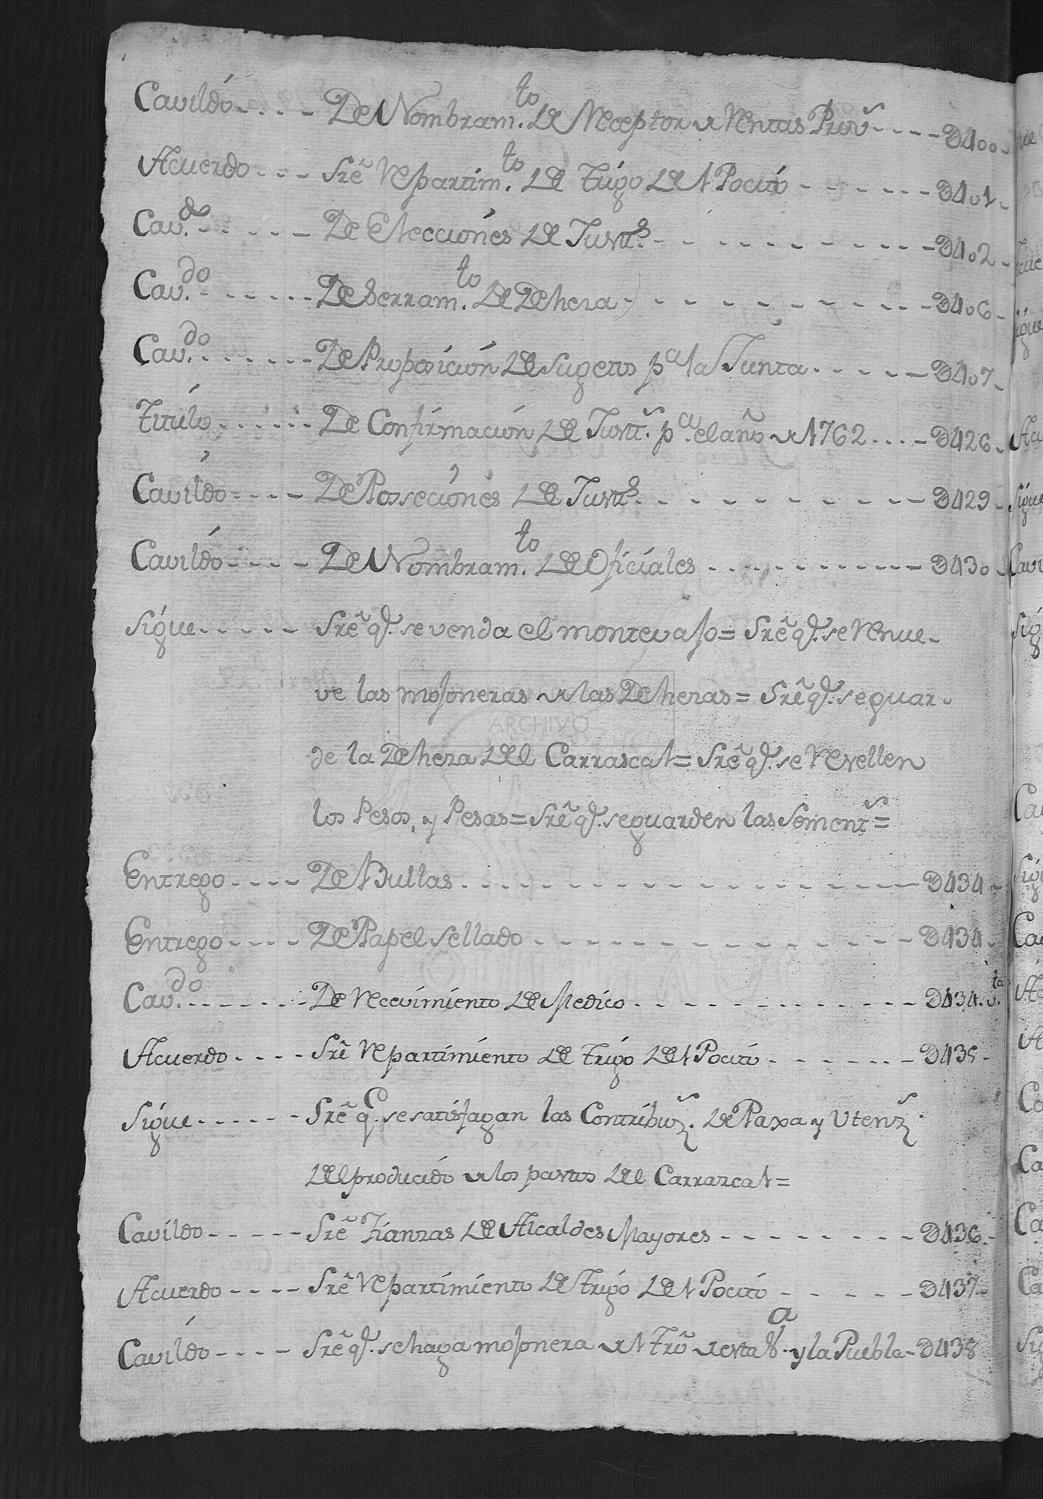 Cavildo - - - - De Nombram.to de Receptor de Rentas Prov.s - - - - D400.
Acuerdo - - - Sre Repartim.to de trigo del Pocito - - - - - - D401.
Cav.do - - - - - De Elecciones de Justt.s - - - - - - - - - D402.
Cav.do - - - - - De Serram.to de Dehera - - - - - - - - - D406.
Cav.do - - - - - De Proposición de Sugetos p.a la Junta - - - - - D407.
titúlo - - - - - - De Confirmación de Justt.s p.a el año de 1762 - - - - D426.
Cavildo - - - - De Posseciones de Justt.s - - - - - - - - - D429.
Cavildo - - - - De Nombram.to de Oficiales - - - - - - - - - D430.
Sigue - - - - - Sre q.e se venda el monte vajo = Sre q.e se Renue-
ve las mojoneras de las Deheras = Sre q.e se guar-
de la Dehera del Carrascal = Sre q.e se Revellen
los Pesos, y Pesas = Sre q.e se guarden las Sement.s =
Entrego - - - - De Bullas - - - - - - - - - - - - - D434.
Entrego - - - - De Papel Sellado - - - - - - - - - - - D434.
Cav.do - - - - - - De recevimiento de Medico - - - - - - - - - D434.v.ta
Acuerdo - - - - Sre Repartimiento de trigo del Pocito - - - - - - D435.
Sigue - - - - - - Sre q.e se satisfagan las Contribuz.s de Paxa y Utenz.s
del producido de los pastos del Carrarcal =
Cavildo - - - - - Sre Fianzas de Alcaldes Mayores - - - - - - - - D436.
Acuerdo - - - - Sre Repartimiento de trigo del Pocito - - - - - D437.
Cavildo - - - - Sre q.e se haga mojonera del tro de esta V.a y la Puebla - D438
ARCHIVO